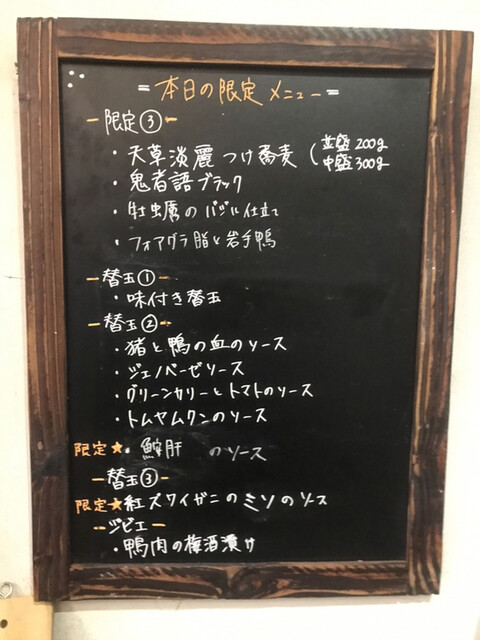 =本日の限定メニュー=
-限定③-
・天草淡麗つけ蕎麦 (並盛200g
中盛300g
・鬼者語ブラック
・牡蠣のバジル仕立て
・フォアグラ脂と岩手鴨
-替玉①-
・味付き替玉
-替玉②-
・猪と鴨の血のソース
・ジェノベーゼソース
・グリーンカリーとトマトのソース
・トムヤムクンのソース
限定★・鮟肝 のソース
-替玉③-
限定★紅ズワイガニのミソのソース
-ジビエ-
・鴨肉の梅酒漬け